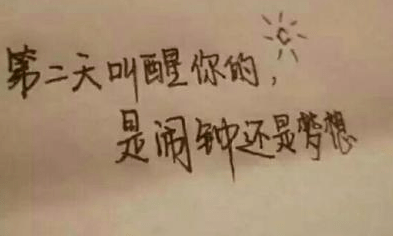 第二天叫醒你的，
是闹钟还是梦想